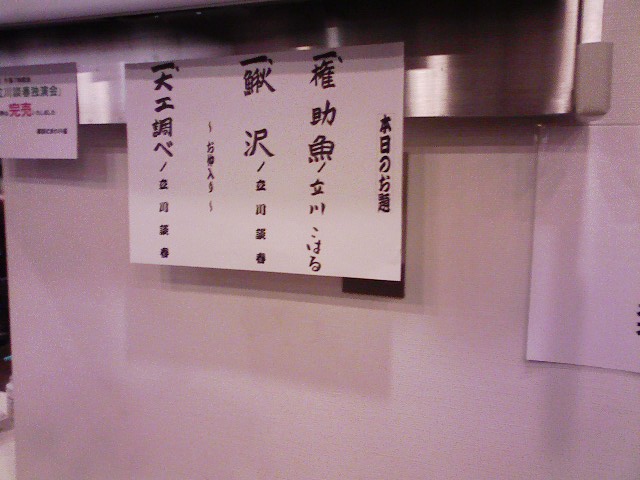 本日のお題
一、権助魚/立川こはる
一、鰍沢/立川談春
~お仲入り~
一、大工調べ/立川談春
立川談春独演会」
完売いたしました